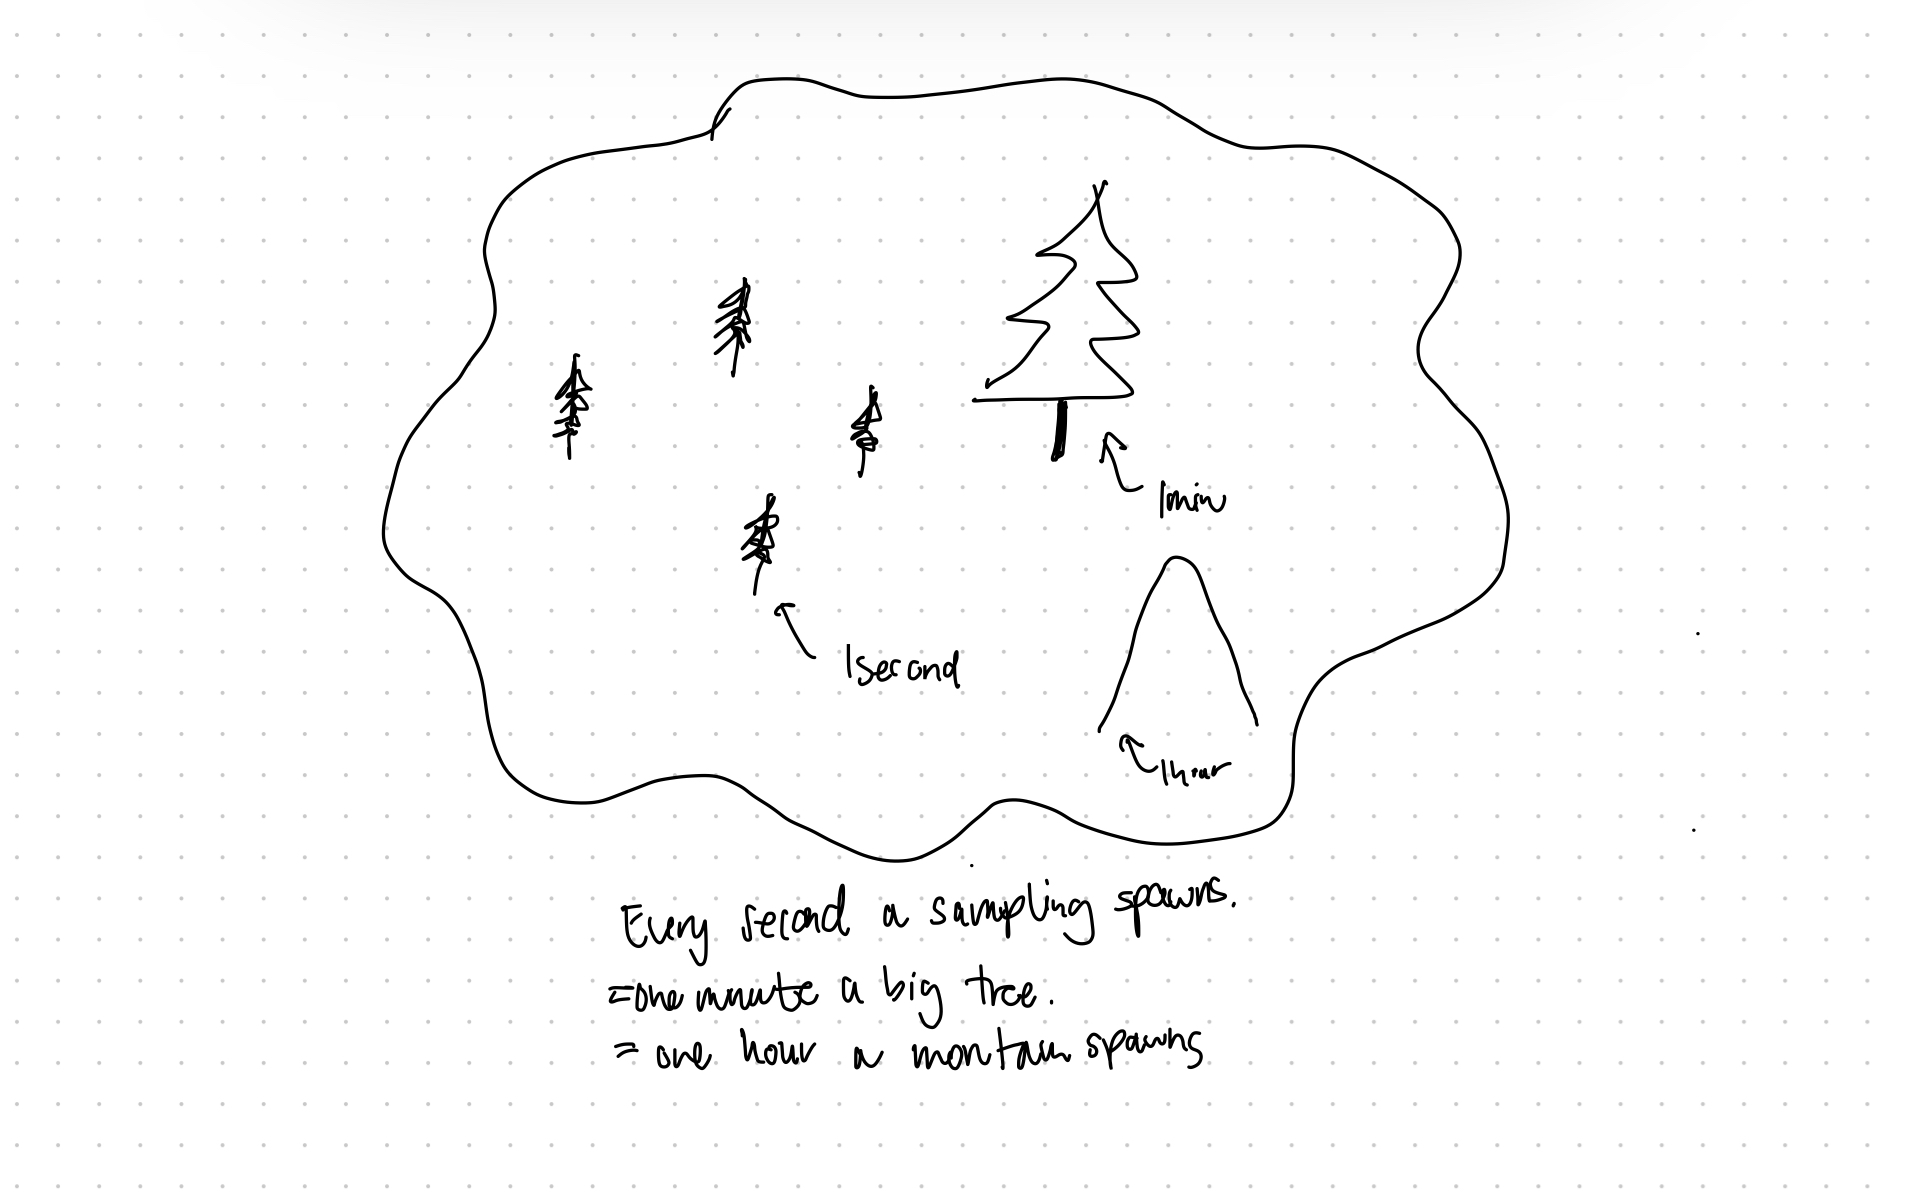 1min
1second
1hour
Every second a sampling spawns.
=one minute a big tree.
= one hour a montain spawns